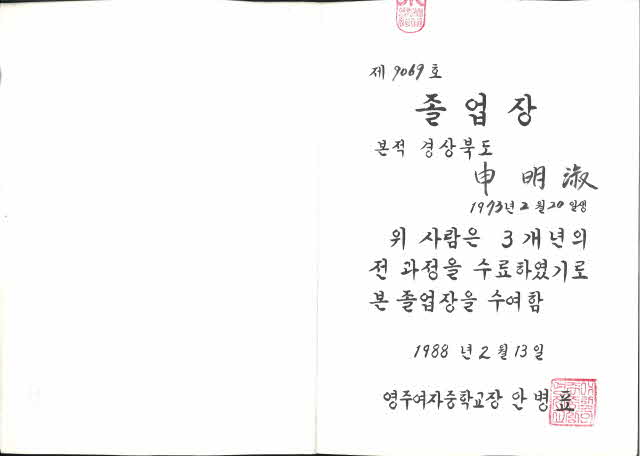 제 9069 호
졸업장
본적 경상북도
申明淑
1973년 2월 20일생
위 사람은 3개년의
전 과정을 수료하였기로
본 졸업장을 수여함
1988년 2월 13일
영주여자중학교장 안병표